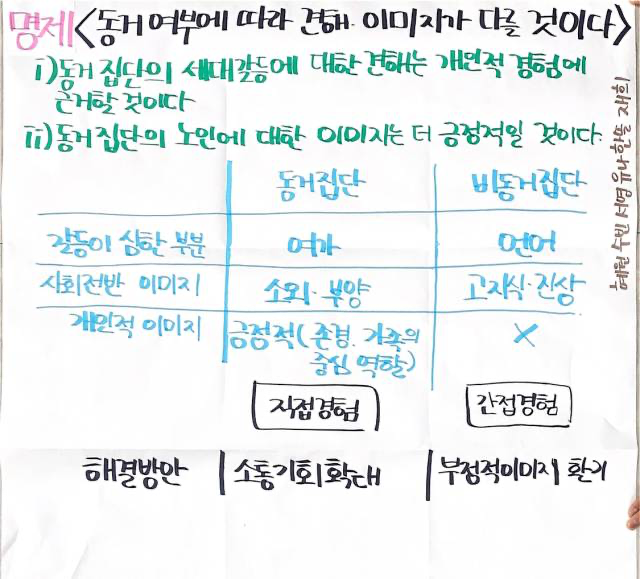 명제 <동거 여부에 따라 견해·이미지가 다를 것이다>
i) 동거 집단의 세대갈등에 대한 견해는 개인적 경험에
근거할 것이다
ii) 동거 집단의 노인에 대한 이미지는 더 긍정적일 것이다.
동거집단 비동거집단
갈등이 심한 부분 여가 언어
사회전반 이미지 소외·부양 고지식·진상
개인적 이미지 긍정적(존경, 가족의 X
중심 역할)
직접경험 간접경험
해결방안 소통기회확대 부정적이미지 환기